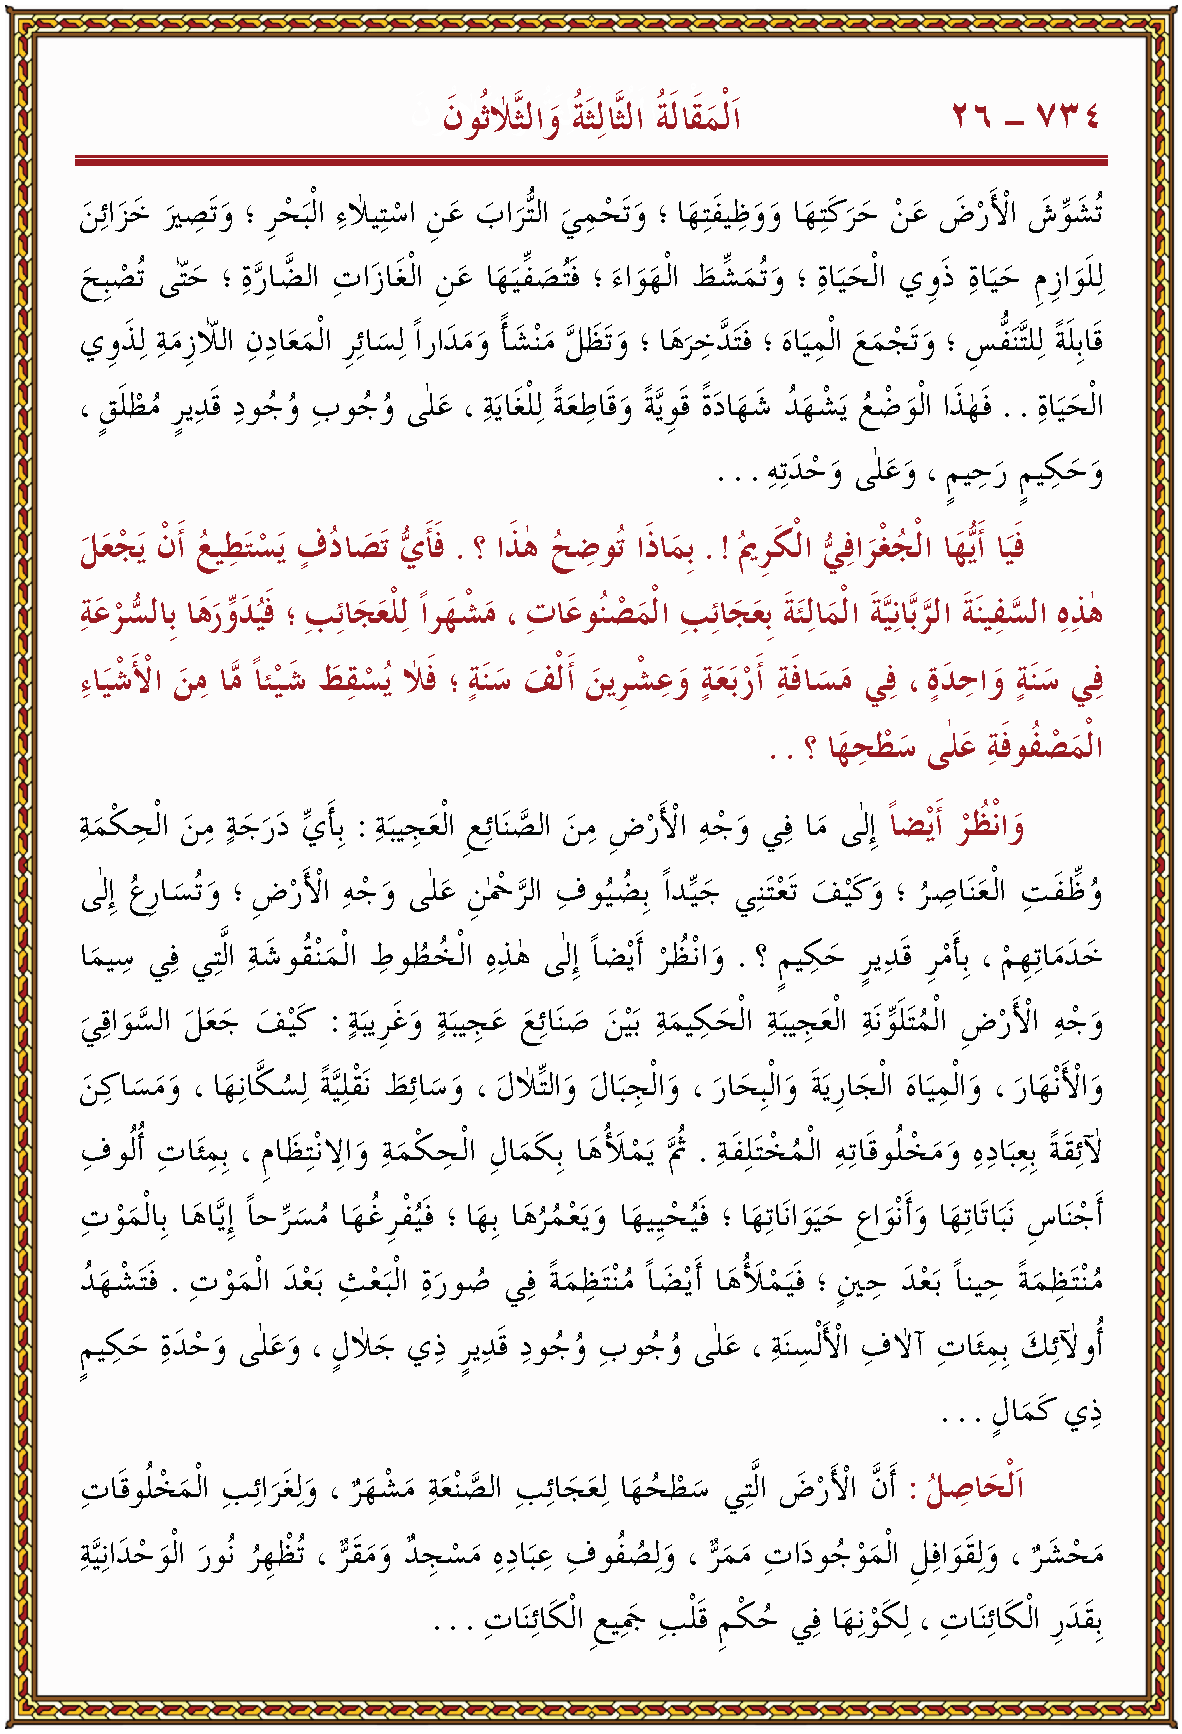 ٧٣٤ – ٢٦ اَلْمَقَالَةُ الثَّالِثَةُ وَالثَّلاٰثُونَ
تُشَوِّشَ الْأَرْضَ عَنْ حَرَكَتِهَا وَوَظِيفَتِهَا ؛ وَتَحْمِيَ التُّرَابَ عَنِ اسْتِيلاٰءِ الْبَحْرِ ؛ وَتَصِيرَ خَزَائِنَ
لِلَوَازِمِ حَيَاةِ ذَوِي الْحَيَاةِ ؛ وَتُمَشِّطَ الْهَوَاءَ ؛ فَتُصَفِّيَهَا عَنِ الْغَازَاتِ الضَّارَّةِ ؛ حَتّٰى تُصْبِحَ
قَابِلَةً لِلتَّنَفُّسِ ؛ وَتَجْمَعَ الْمِيَاهَ ؛ فَتَدَّخِرَهَا ؛ وَتَظَلَّ مَنْشَأً وَمَدَاراً لِسَائِرِ الْمَعَادِنِ اللاّٰزِمَةِ لِذَوِي
الْحَيَاةِ . . فَهٰذَا الْوَضْعُ يَشْهَدُ شَهَادَةً قَوِيَّةً وَقَاطِعَةً لِلْغَايَةِ ، عَلٰى وُجُوبِ وُجُودِ قَدِيرٍ مُطْلَقٍ ،
وَحَكِيمٍ رَحِيمٍ ، وَعَلٰى وَحْدَتِهِ . . .
فَيَا أَيُّهَا الْجُغْرَافِيُّ الْكَرِيمُ ! . بِمَاذَا تُوضِحُ هٰذَا ؟ . فَأَيُّ تَصَادُفٍ يَسْتَطِيعُ أَنْ يَجْعَلَ
هٰذِهِ السَّفِينَةَ الرَّبَّانِيَّةَ الْمَالِئَةَ بِعَجَائِبِ الْمَصْنُوعَاتِ ، مَشْهَراً لِلْعَجَائِبِ ؛ فَيُدَوِّرَهَا بِالسُّرْعَةِ
فِي سَنَةٍ وَاحِدَةٍ ، فِي مَسَافَةِ أَرْبَعَةٍ وَعِشْرِينَ أَلْفَ سَنَةٍ ؛ فَلاٰ يُسْقِطَ شَيْئاً مَّا مِنَ الْأَشْيَاءِ
الْمَصْفُوفَةِ عَلٰى سَطْحِهَا ؟ . .
وَانْظُرْ أَيْضاً إِلٰى مَا فِي وَجْهِ الْأَرْضِ مِنَ الصَّنَائِعِ الْعَجِيبَةِ : بِأَيِّ دَرَجَةٍ مِنَ الْحِكْمَةِ
وُظِّفَتِ الْعَنَاصِرُ ؛ وَكَيْفَ تَعْتَنِي جَيِّداً بِضُيُوفِ الرَّحْمٰنِ عَلٰى وَجْهِ الْأَرْضِ ؛ وَتُسَارِعُ إِلٰى
خَدَمَاتِهِمْ ، بِأَمْرِ قَدِيرٍ حَكِيمٍ ؟ . وَانْظُرْ أَيْضاً إِلٰى هٰذِهِ الْخُطُوطِ الْمَنْقُوشَةِ الَّتِي فِي سِيمَا
وَجْهِ الْأَرْضِ الْمُتَلَوِّنَةِ الْعَجِيبَةِ الْحَكِيمَةِ بَيْنَ صَنَائِعَ عَجِيبَةٍ وَغَرِيبَةٍ : كَيْفَ جَعَلَ السَّوَاقِيَ
وَالْأَنْهَارَ ، وَالْمِيَاهَ الْجَارِيَةَ وَالْبِحَارَ ، وَالْجِبَالَ وَالتِّلاٰلَ ، وَسَائِطَ نَقْلِيَّةً لِسُكَّانِهَا ، وَمَسَاكِنَ
لاٰئِقَةً بِعِبَادِهِ وَمَخْلُوقَاتِهِ الْمُخْتَلِفَةِ . ثُمَّ يَمْلَأُهَا بِكَمَالِ الْحِكْمَةِ وَالْاِنْتِظَامِ ، بِمِئَاتِ أُلُوفِ
أَجْنَاسِ نَبَاتَاتِهَا وَأَنْوَاعِ حَيَوَانَاتِهَا ؛ فَيُحْيِيهَا وَيَعْمُرُهَا بِهَا ؛ فَيُفْرِغُهَا مُسَرِّحاً إِيَّاهَا بِالْمَوْتِ
مُنْتَظِمَةً حِيناً بَعْدَ حِينٍ ؛ فَيَمْلَأُهَا أَيْضاً مُنْتَظِمَةً فِي صُورَةِ الْبَعْثِ بَعْدَ الْمَوْتِ . فَتَشْهَدُ
أُولاٰئِكَ بِمِئَاتِ آلاٰفِ الْأَلْسِنَةِ ، عَلٰى وُجُوبِ وُجُودِ قَدِيرٍ ذِي جَلاٰلٍ ، وَعَلٰى وَحْدَةِ حَكِيمٍ
ذِي كَمَالٍ . . .
اَلْحَاصِلُ : أَنَّ الْأَرْضَ الَّتِي سَطْحُهَا لِعَجَائِبِ الصَّنْعَةِ مَشْهَرٌ ، وَلِغَرَائِبِ الْمَخْلُوقَاتِ
مَحْشَرٌ ، وَلِقَوَافِلِ الْمَوْجُودَاتِ مَمَرٌّ ، وَلِصُفُوفِ عِبَادِهِ مَسْجِدٌ وَمَقَرٌّ ، تُظْهِرُ نُورَ الْوَحْدَانِيَّةِ
بِقَدَرِ الْكَائِنَاتِ ، لِكَوْنِهَا فِي حُكْمِ قَلْبِ جَمِيعِ الْكَائِنَاتِ . . .